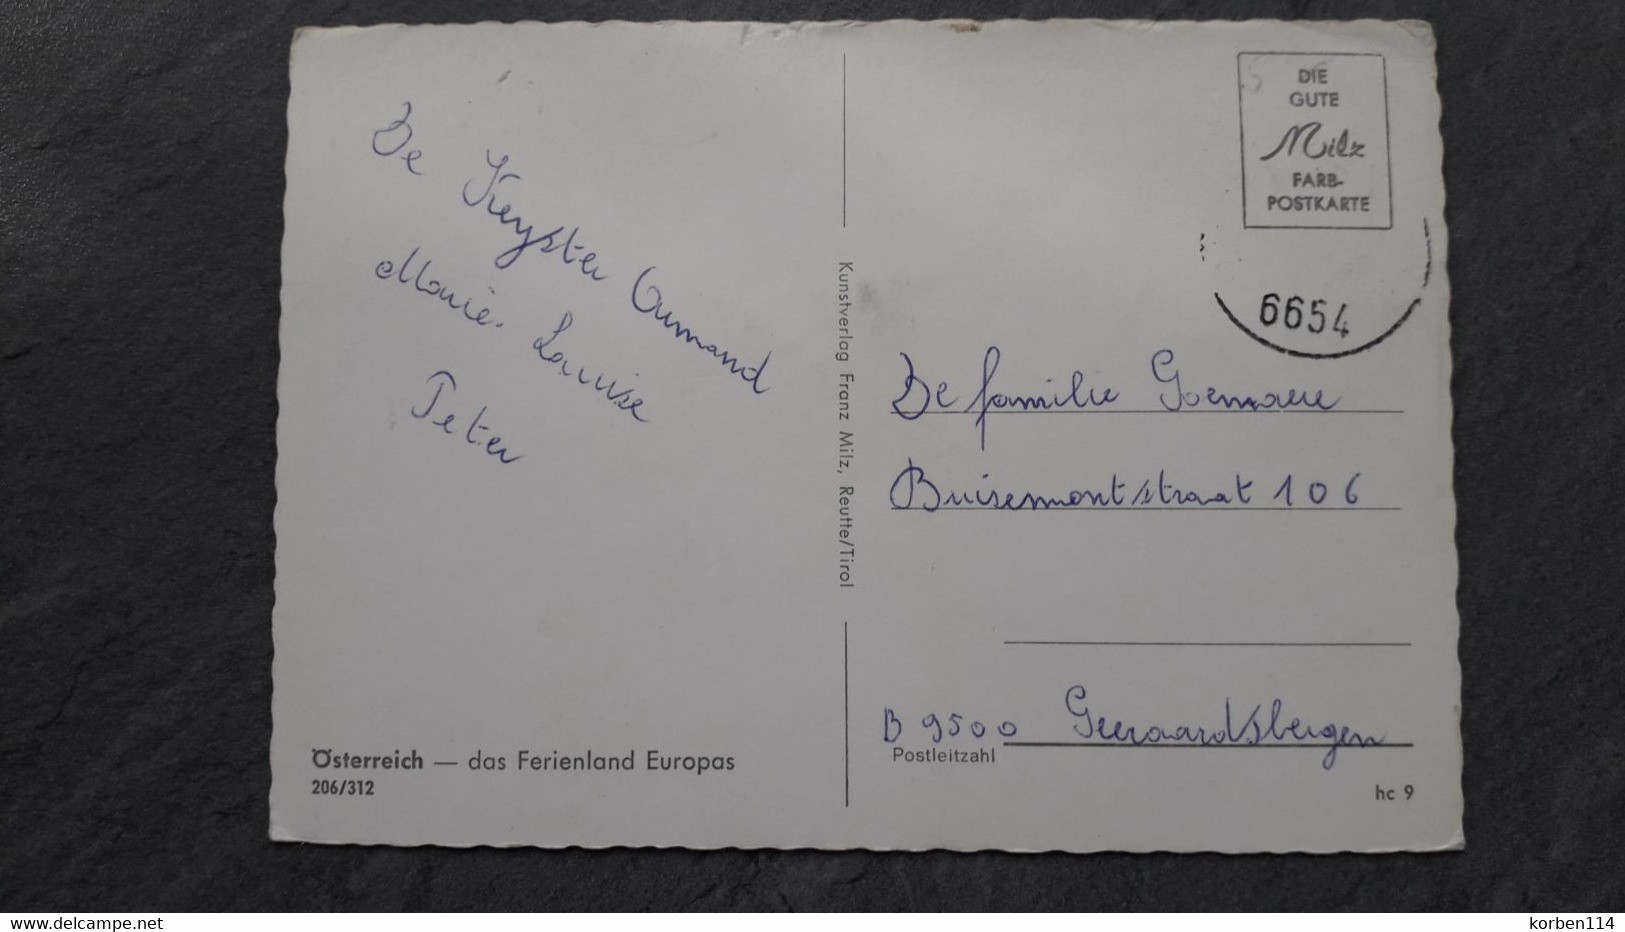 De Keyster Armand
Marie-Louise
Peter
Österreich — das Ferienland Europas
206/312
Kunstverlag Franz Milz, Reutte/Tirol
DIE
GUTE
Milz
FARB-
POSTKARTE
6654
De familie Goemaere
Buisemontstraat 106
B 9500 Geeraardsbergen
Postleitzahl
hc 9
www.delcampe.net
korben114